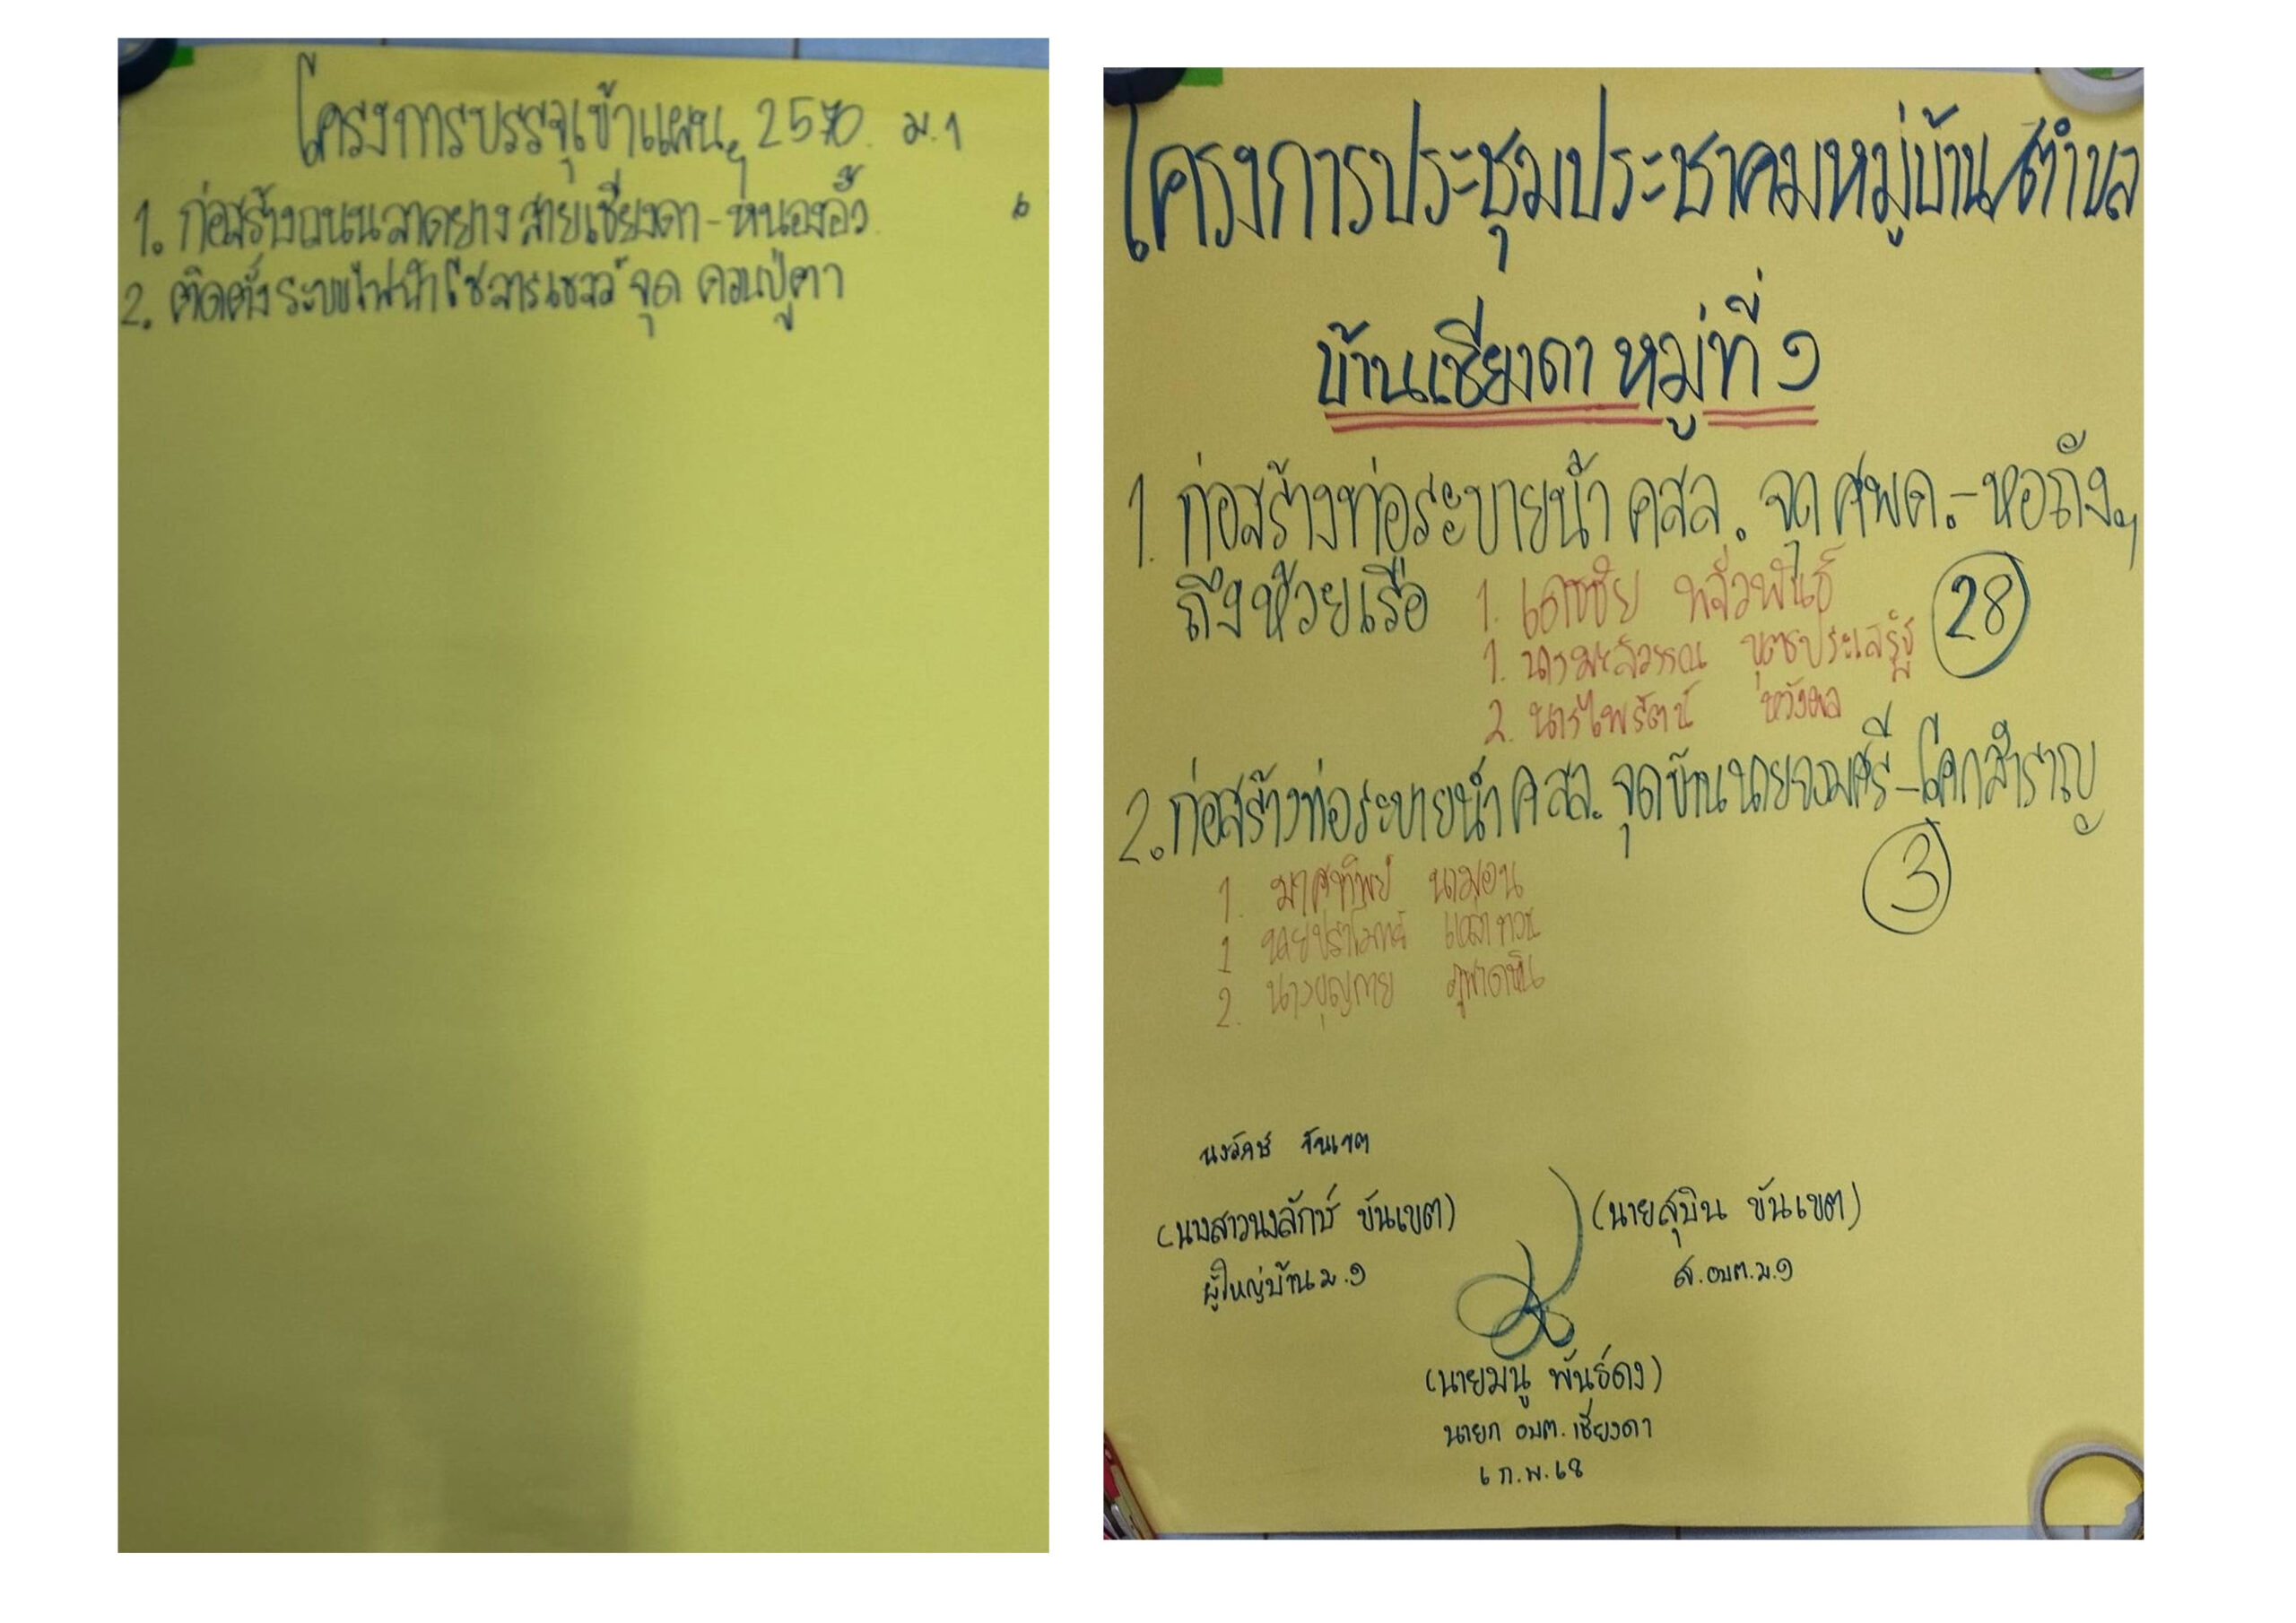 โครงการบรรจุเข้าแผนฯ 2570 ม.1
1. ก่อสร้างถนนลาดยาง สายเชียงดา-หนองอิ้ว
2. ติดตั้งระบบไฟฟ้าโซลาร์เซลล์ จุด ดอนปู่ตา
โครงการประชุมประชาคมหมู่บ้าน/ตำบล
บ้านเชียงดา หมู่ที่ ๑
1. ก่อสร้างท่อระบายน้ำ คสล. จุด ศพด.-หอถังฯ
ถึงห้วยเรือ
1. เดชชัย
28
1.
2. นางไพรัตน์ หวังผล
2. ก่อสร้างท่อระบายน้ำ คสล. จุดบ้านนายจอมศรี-โคกสำราญ
3
1. มาศทิพย์
1 นายปราโมทย์
2. นางบุญกาย
นงลักษ์ ขันเขต
(นางสาวนงลักษ์ ขันเขต) (นายสุบิน ขันเขต)
ผู้ใหญ่บ้าน ม.๑ ส.อบต.ม.๑
(นายมนู พันธ์ดง)
นายก อบต.เชียงดา
๖ ก.พ. ๖๘